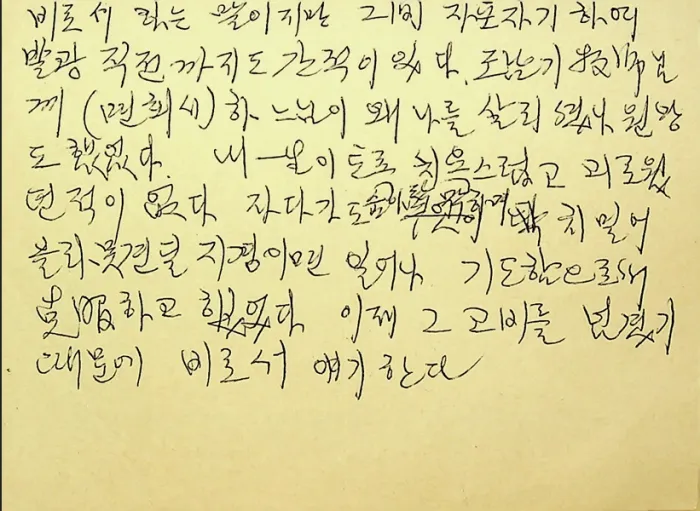 비로서 하는 말이지만 그때 자포자기하여
발광 직전까지도 간적이 있다. 牧師님
께 (면회시) 하느님이 왜 나를 살리셨나 원망
도 했었다. 내 一生이 도로 치욕스럽고 괴로웠
던적이 없다 자다가도 치밀어
올라 못견딜 지경이면 일어나 기도함으로써
克服하고 했었다. 이제 그 고비를 넘겼기
때문에 비로서 얘기한다